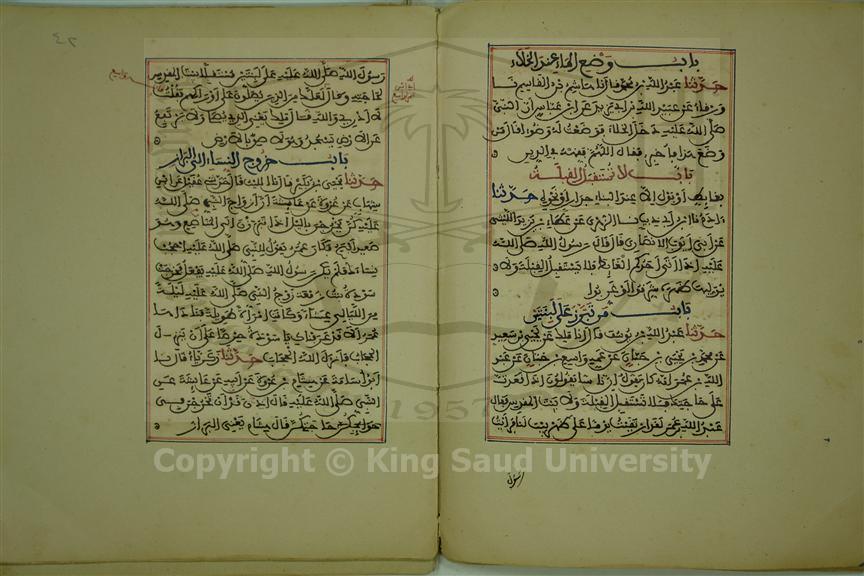 باب وضع الماء عند الخلاء
حدثنا عبد الله بن محمد قال نا هاشم بن القاسم نا
ورقاء عن عبيد الله بن ابي يزيد عن ابن عباس ان النبي
صلى الله عليه دخل الخلاء فوضعت له وضوءا قال من
وضع هذا فاخبر فقال اللهم فقهه في الدين
باب لا تستقبل القبلة
بغايط او بول الا عند البناء جدار او نحوه حدثنا
ادم قال نا ابن ابي ذيب نا الزهري عن عطاء بن يزيد الليثي
عن ابي ايوب الانصاري قال قال رسول الله صلى الله
عليه اذا اتى احدكم الغايط فلا يستقبل القبلة ولا
يولها ظهره شرقوا او غربوا
باب من تبرز على لبنتين
حدثنا عبد الله بن يوسف قال انا ملك عن يحيى بن سعيد
عن محمد بن يحيى بن حبان عن عمه واسع بن حبان عن عبد
الله بن عمر انه كان يقول ان ناسا يقولون اذا قعدت
على حاجتك فلا تستقبل القبلة ولا بيت المقدس فقال
عبد الله بن عمر لقد ارتقيت يوما على ظهر بيت لنا فرايت
رسول
٤٢
رسول الله صلى الله عليه على لبنتين مستقبلا بيت المقدس
لحاجته وقال لعلك من الذين يصلون على اوراكهم فقلت
لا ادري والله قال ملك يعني الذي يصلي ولا يرتفع
عن الارض يسجد وهو لاصق بالارض
باب خروج النساء الى البراز
حدثنا يحيى بن بكير قال نا الليث قال حدثني عقيل عن ابن
شهاب عن عروة عن عايشة ان ازواج النبي صلى الله
عليه كن يخرجن بالليل اذا تبرزن الى المناصع وهو
صعيد افيح وكان عمر يقول للنبي صلى الله عليه احجب
نساءك فلم يكن رسول الله صلى الله عليه يفعل فخرجت
سودة بنت زمعة زوج النبي صلى الله عليه ليلة
من الليالي عشاء وكانت امراة طويلة فناداها
عمر الا قد عرفناك يا سودة حرصا على ان ينزل
الحجاب فانزل الله الحجاب حدثنا زكرياء قال نا
ابو اسامة عن هشام بن عروة عن ابيه عن عايشة عن
النبي صلى الله عليه قال قد اذن ان تخرجن في
حاجتكن قال هشام يعني البراز
1957
Copyright © King Saud University